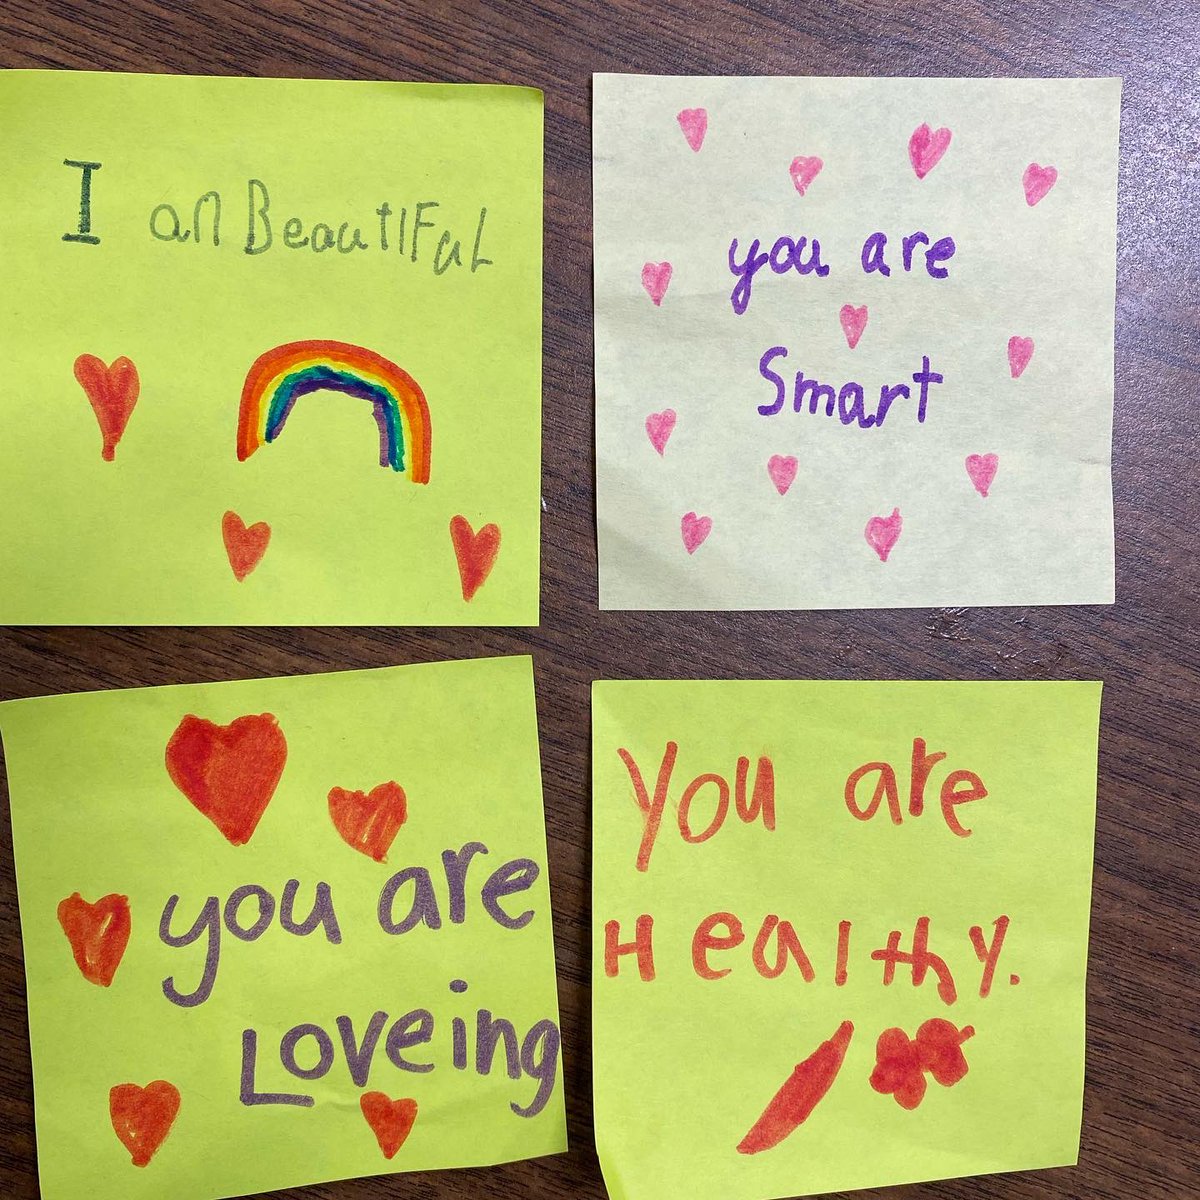 I am BeautIFuL
you are
Smart
you are
Loveing
You are
Healthy.